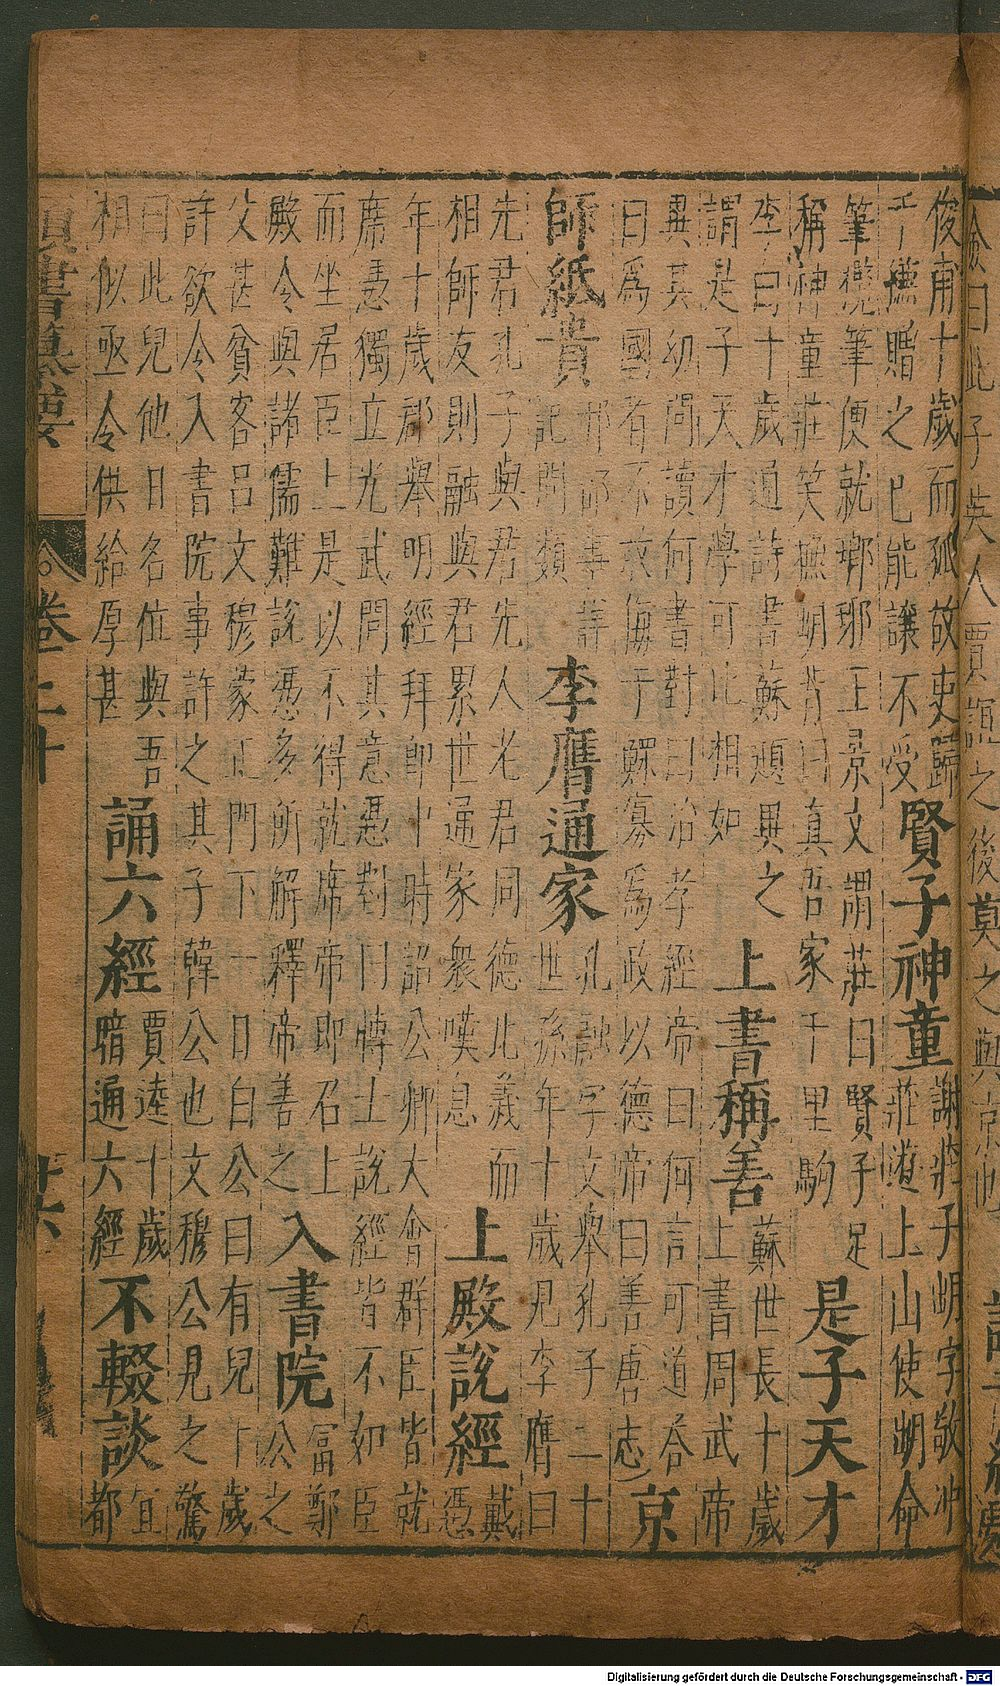 曰此子英人賈誼之後莫之與京
俊甫十歲而孤故吏歸
千縑贈之已能讓不受
賢子神童
謝莊子朏字敬冲
莊遊上山使朏命
筆攬筆便就瑯琊王景文謂莊曰賢子足
稱神童莊笑撫朏背曰真吾家千里駒
是子天才
李曰十歲通詩書蘇頲異之
謂是子天才學可比相如
上書稱善
蘇世長十歲
上書周武帝
異其幼問讀何書對曰治孝經帝曰何言可道答
曰爲國者不敢侮于鰥寡爲政以德帝曰善唐志
京
師紙貴
邢邵事詳
記問類
李膺通家
孔融字文舉孔子二十
世孫年十歲見李膺曰
先君孔子與君先人老君同德比義而
相師友則融與君累世通家衆嘆息
上殿說經
戴
憑
年十歲郡舉明經拜郎中時詔公卿大會群臣皆就
席憑獨立光武問其意憑對曰博士說經皆不如臣
而坐居臣上是以不得就席帝即召上
殿令與諸儒難說憑多所解釋帝善之
入書院
富鄭
公之
父甚貧客呂文穆蒙正門下一日白公曰有兒十歲
許欲令入書院事許之其子韓公也文穆公見之驚
曰此兒他日名位與吾
相似亟令供給厚甚
誦六經
賈逵十歲
暗通六經
不輟談
宜
都
類書纂要
卷二十
十六
Digitalisierung gefördert durch die Deutsche Forschungsgemeinschaft - DFG